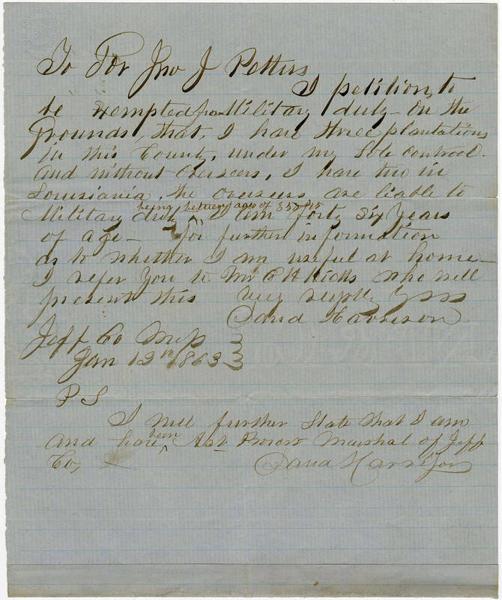 To Gov Jno J Pettus
I petition to
be exempted from Military duty on the
Grounds, that I have three plantations
in this County, under my Sole controal
and without overseers, I have two in
Louisiania, the overseers are liable to
being between age of 35 & 45
Military duty I am forty six Years
of age — for further information
as to whether I am useful at home—
I refer You to Mr Hicks who will
present this Very respfly Yrs
David Harrison
Jeff Co Miss
Jan 12th 1863
P S
I will further State that I am
and have been Ast Provost Marshal of Jeff
Co, David Harrison